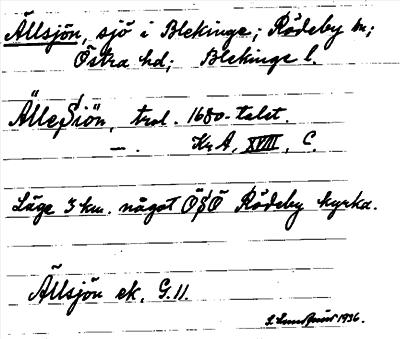 Ällsjön, sjö i Blekinge; Rödeby sn;
Östra hd; Blekinge l.
Älle Siön, trol. 1680-talet.
—. Kr A, XVIII, C.
Läge 3 km. något ÖSÖ Rödeby kyrka.
Ällsjön ek. G.11.
S. Lundqvist 1936.